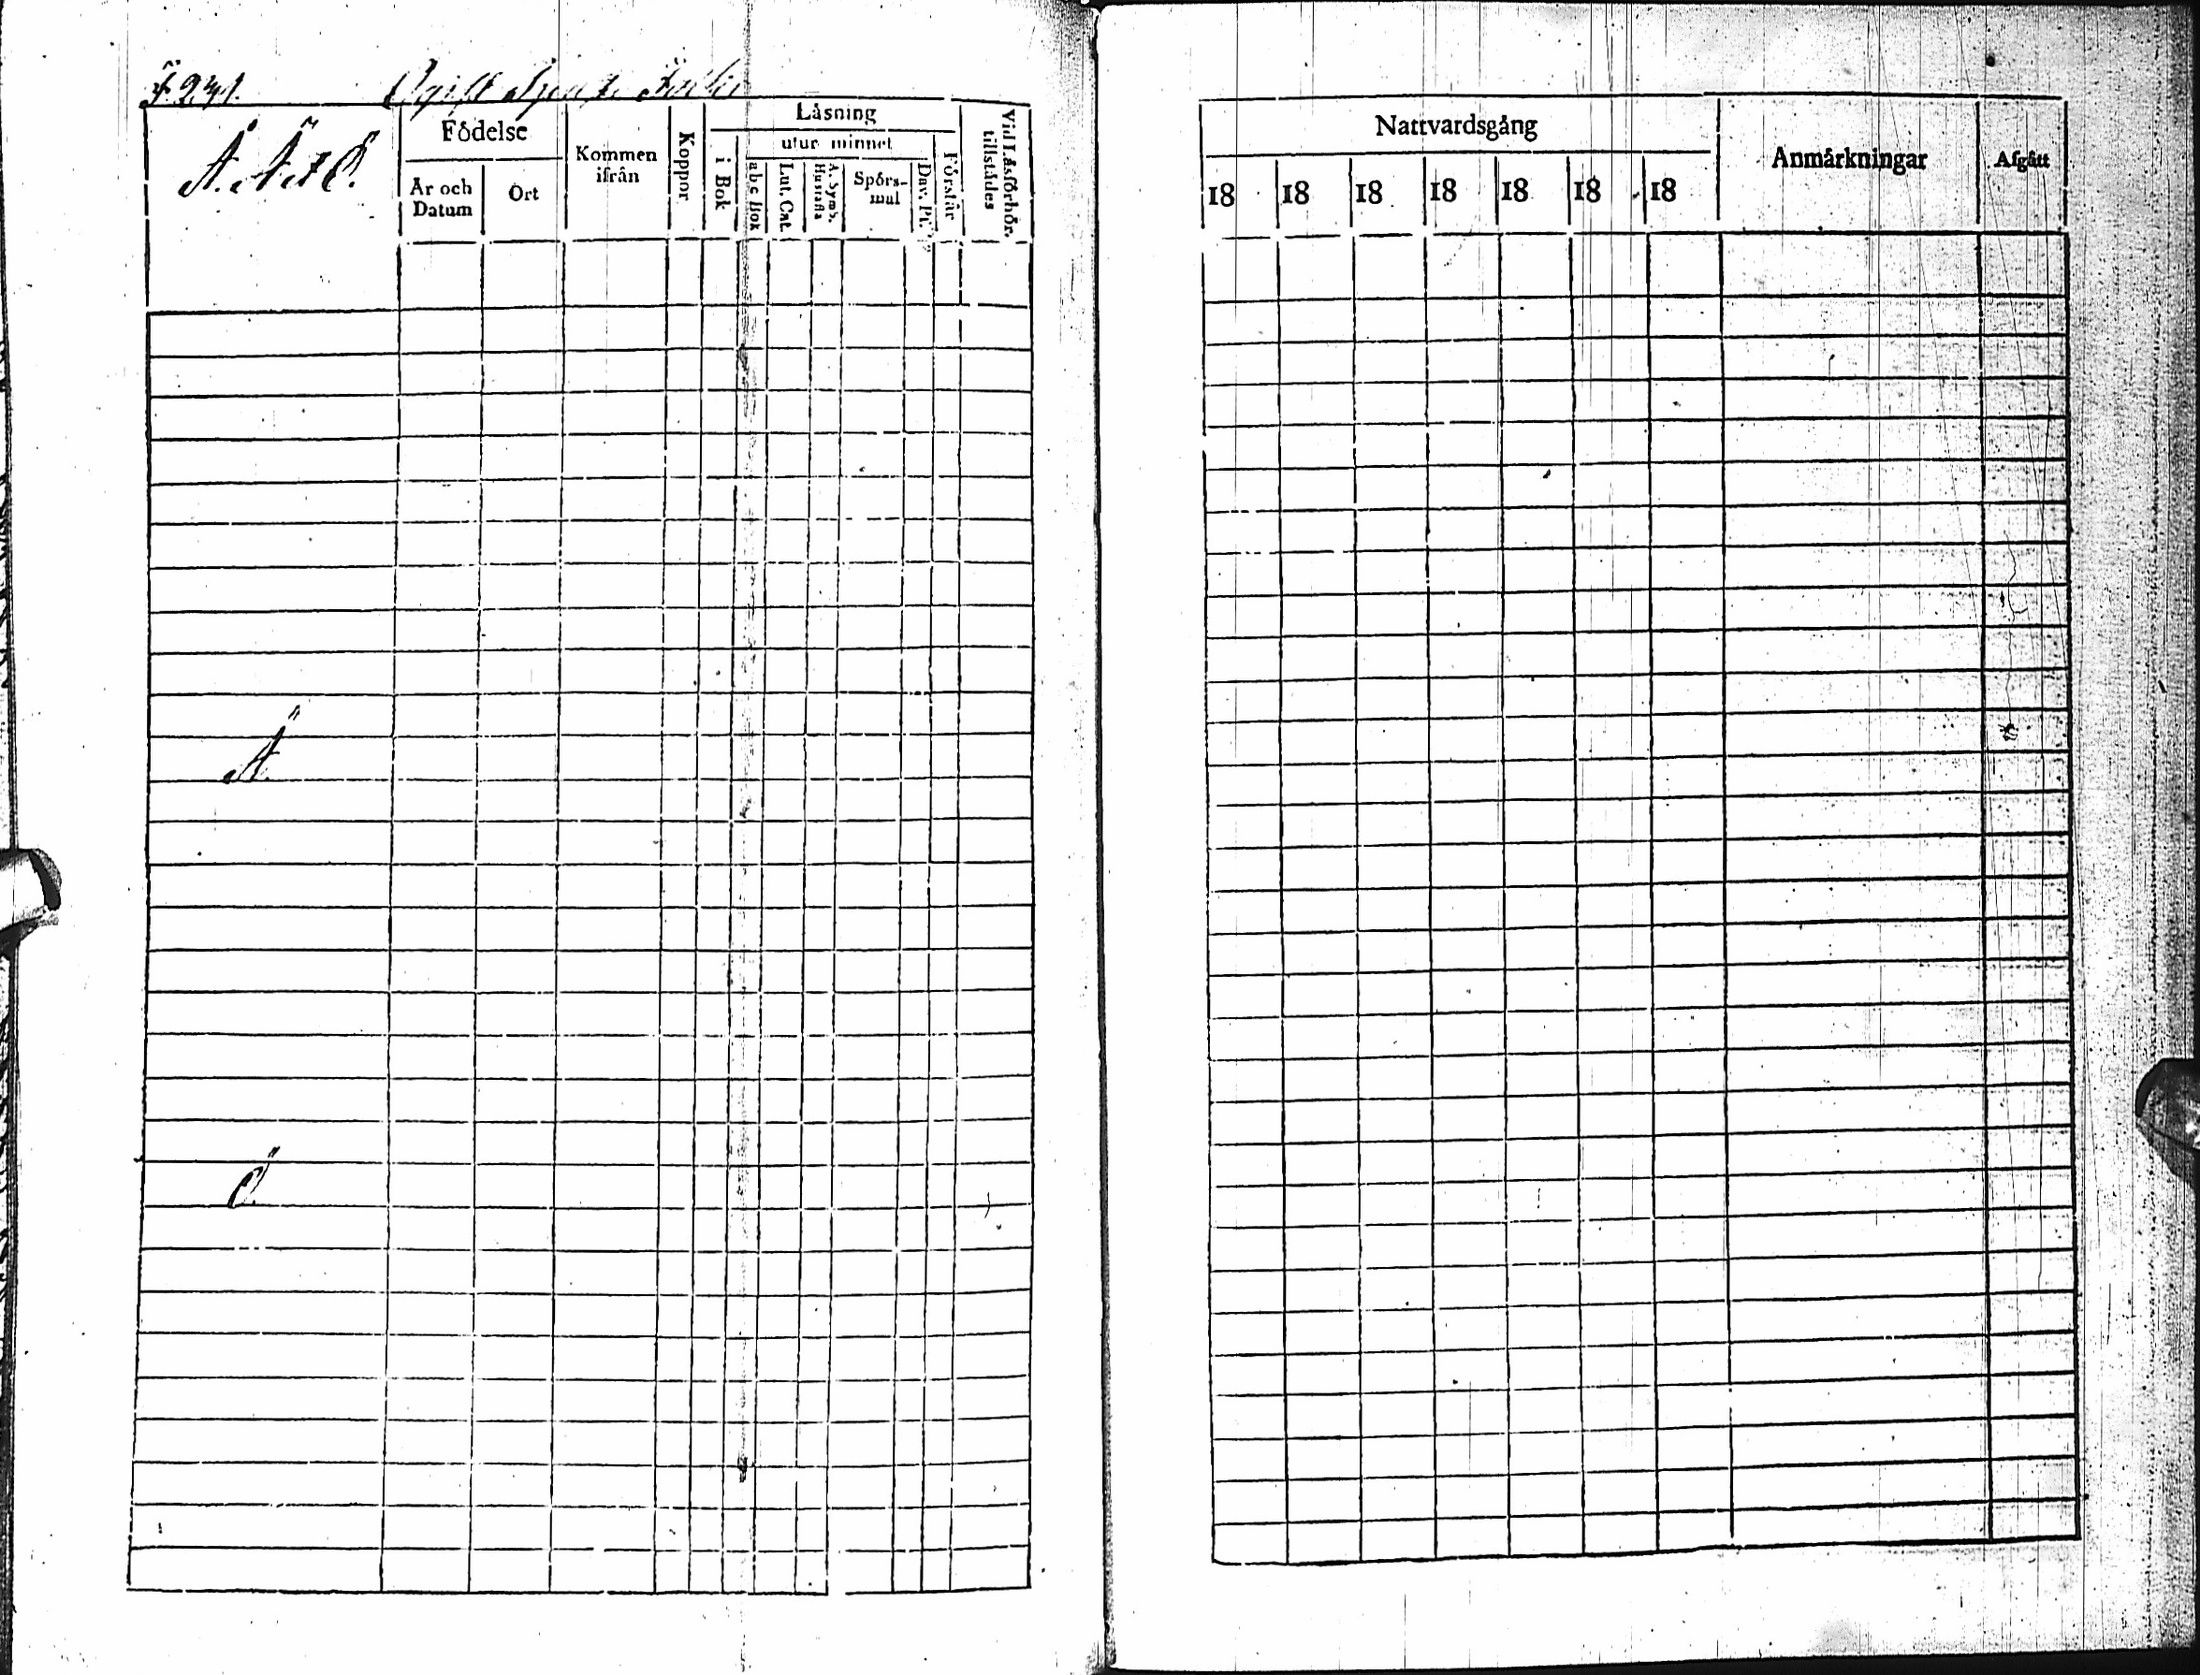 Å. Ä & Ö.
Födelse
År och Datum
Ort
Kommen ifrån
Koppor
Läsning
i Bok
utur minnet
abc Bok
Lut. Cat.
A. Symb. Hustafla
Spörs-mål
Dav. Ps.
Förstår
Vid Läsförhör. tillstädes
Ä
Ö
Nattvardsgång
18 18 18 18 18 18 18
Anmärkningar
Afgått